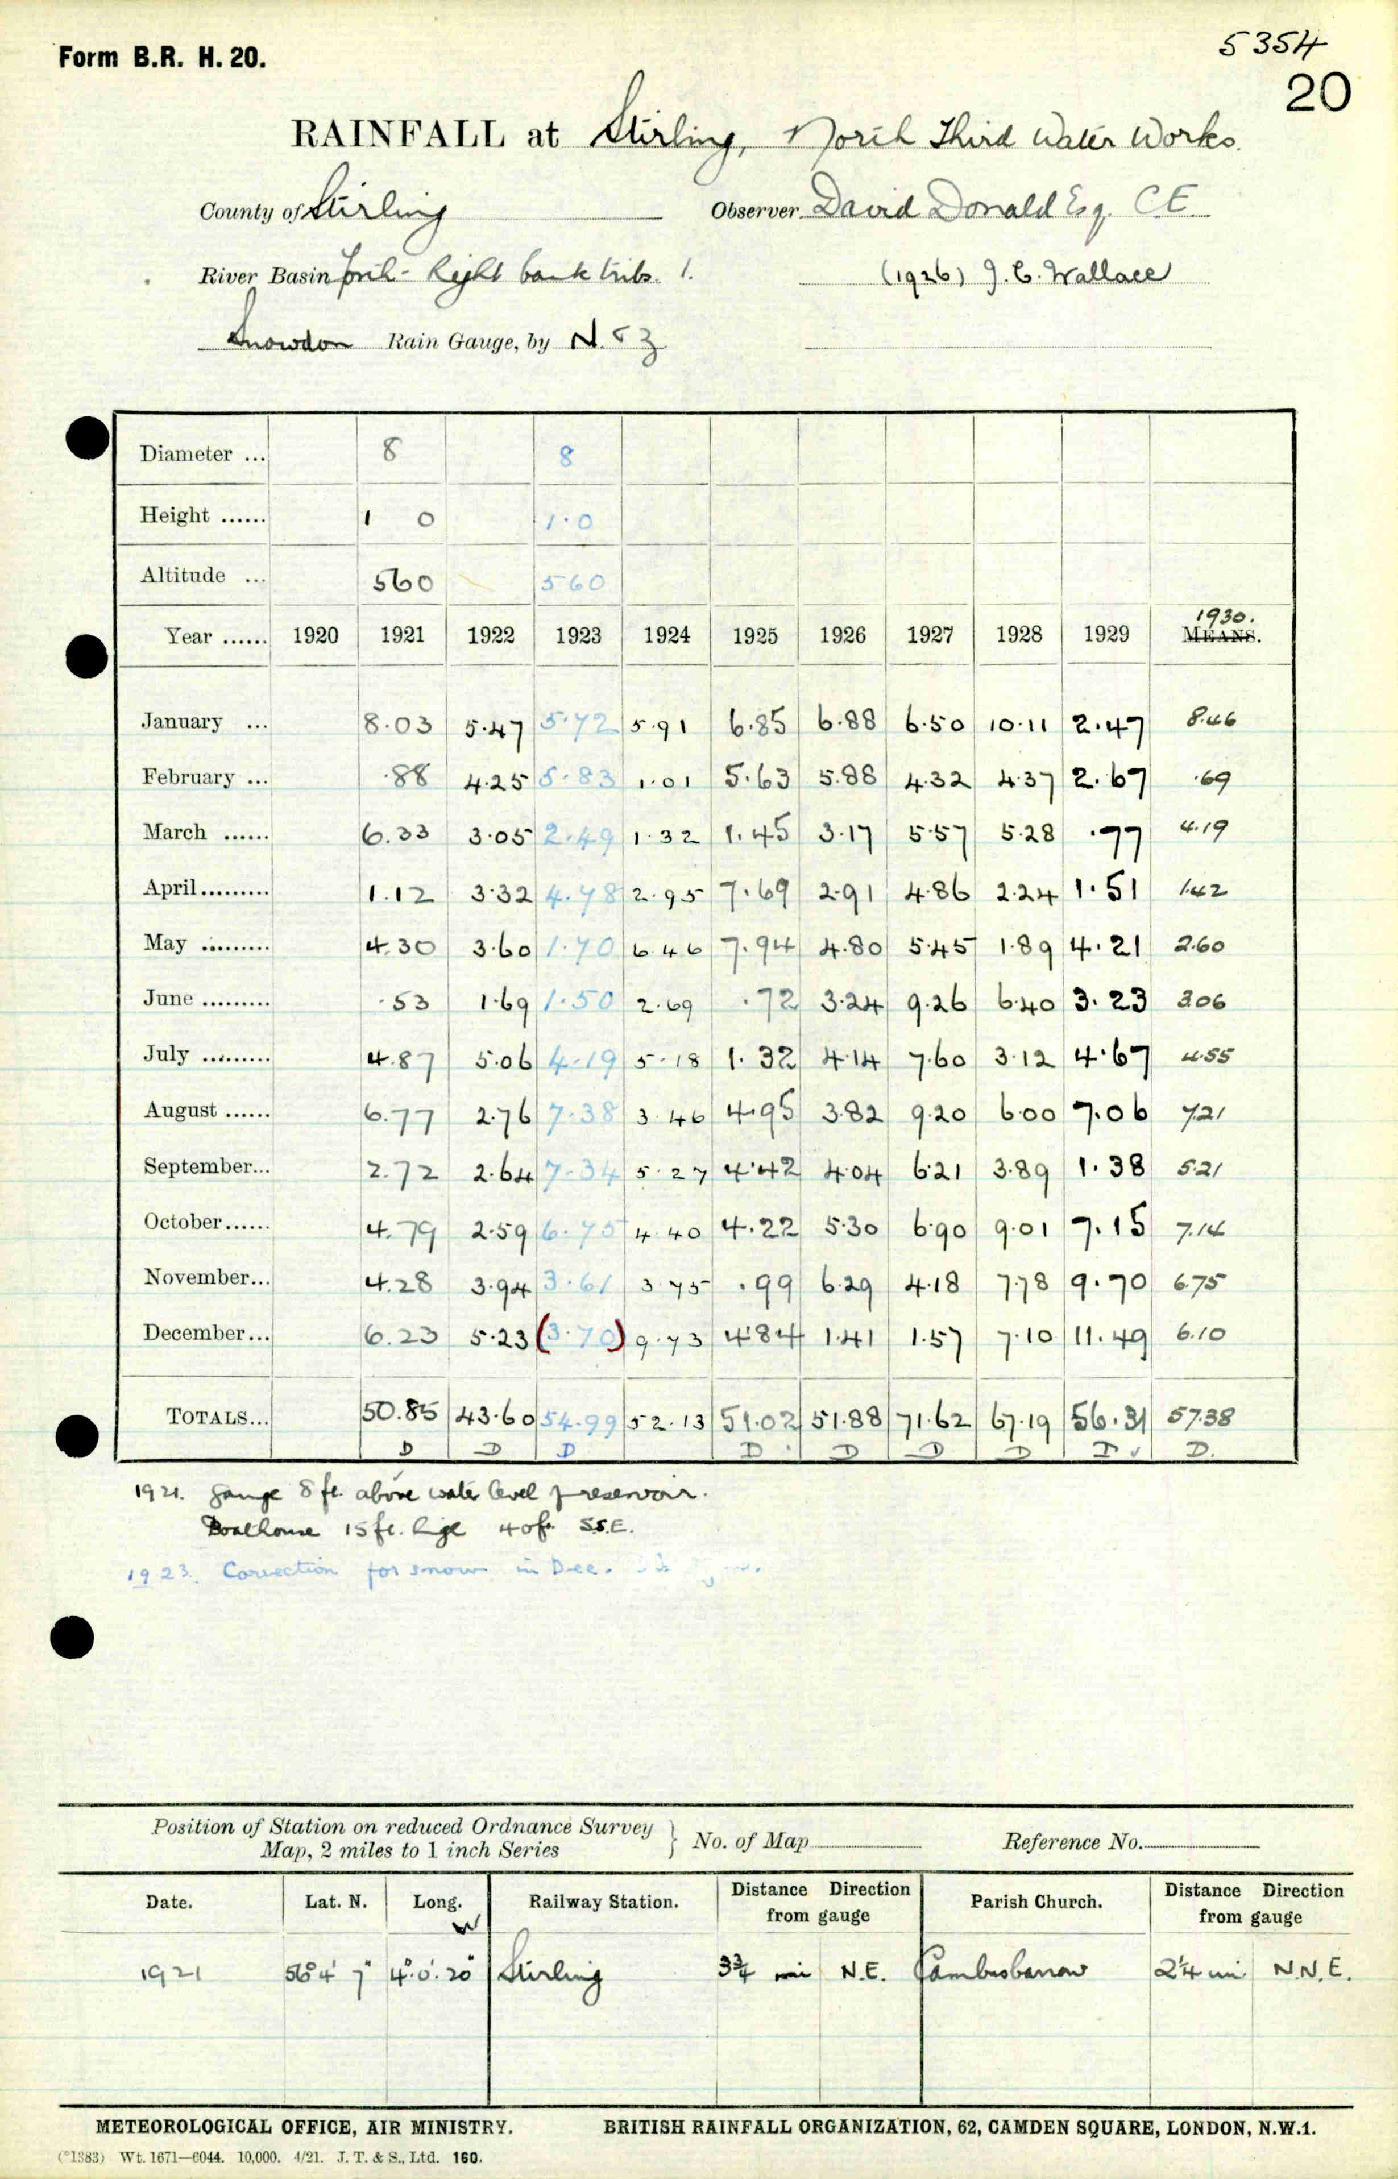 Form B.R. H. 20.
5354
20
RAINFALL at Stirling, North Third Water Works.
County of Stirling Observer David Donald Esq. C.E.
River Basin Forth - Right bank tribs. 1. (1926) J. C. Wallace
Snowdon Rain Gauge, by N. & Z
Diameter ... 8 8
Height ...... 1 0 1.0
Altitude ... 560 560
1930.
Year ...... 1920 1921 1922 1923 1924 1925 1926 1927 1928 1929 MEANS.
January ... 8.03 5.47 5.72 5.91 6.85 6.88 6.50 10.11 2.47 8.46
February ... .88 4.25 5.83 1.01 5.63 5.88 4.32 4.37 2.67 .69
March ...... 6.33 3.05 2.49 1.32 1.45 3.17 5.57 5.28 .77 4.19
April ......... 1.12 3.32 4.78 2.95 7.69 2.91 4.86 2.24 1.51 1.42
May ......... 4.30 3.60 1.70 6.46 7.94 4.80 5.45 1.89 4.21 2.60
June ......... .53 1.69 1.50 2.69 .72 3.24 9.26 6.40 3.23 3.06
July ......... 4.87 5.06 4.19 5.18 1.32 4.14 7.60 3.12 4.67 4.55
August ...... 6.77 2.76 7.38 3.46 4.95 3.82 9.20 6.00 7.06 7.21
September... 2.72 2.64 7.34 5.27 4.42 4.04 6.21 3.89 1.38 5.21
October...... 4.79 2.59 6.75 4.40 4.22 5.30 6.90 9.01 7.15 7.14
November... 4.28 3.94 3.61 3.75 .99 6.29 4.18 7.78 9.70 6.75
December... 6.23 5.23 (3.70) 9.73 4.84 1.41 1.57 7.10 11.49 6.10
TOTALS... 50.85 43.60 54.99 52.13 51.02 51.88 71.62 67.19 56.31 57.38
D D D D D D D D D.
1921. Gauge 8 ft. above water level of reservoir.
Boathouse 15 ft. high 40 ft. S.S.E.
1923. Correction for snow in Dec.
Position of Station on reduced Ordnance Survey
Map, 2 miles to 1 inch Series } No. of Map Reference No.
Date. Lat. N. Long. W Railway Station. Distance Direction from gauge Parish Church. Distance Direction from gauge
1921 56° 4' 7" 4° 0' 20" Stirling 3¾ mi N.E. Cambusbarron 2¼ mi N.N.E.
METEOROLOGICAL OFFICE, AIR MINISTRY. BRITISH RAINFALL ORGANIZATION, 62, CAMDEN SQUARE, LONDON, N.W.1.
(*1383) Wt. 1671—6044. 10,000. 4/21. J. T. & S., Ltd. 160.